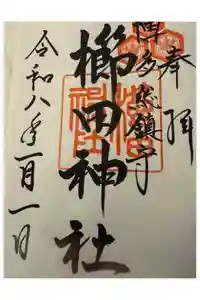 奉拝
博多総鎮守
櫛田神社
令和八年一月一日